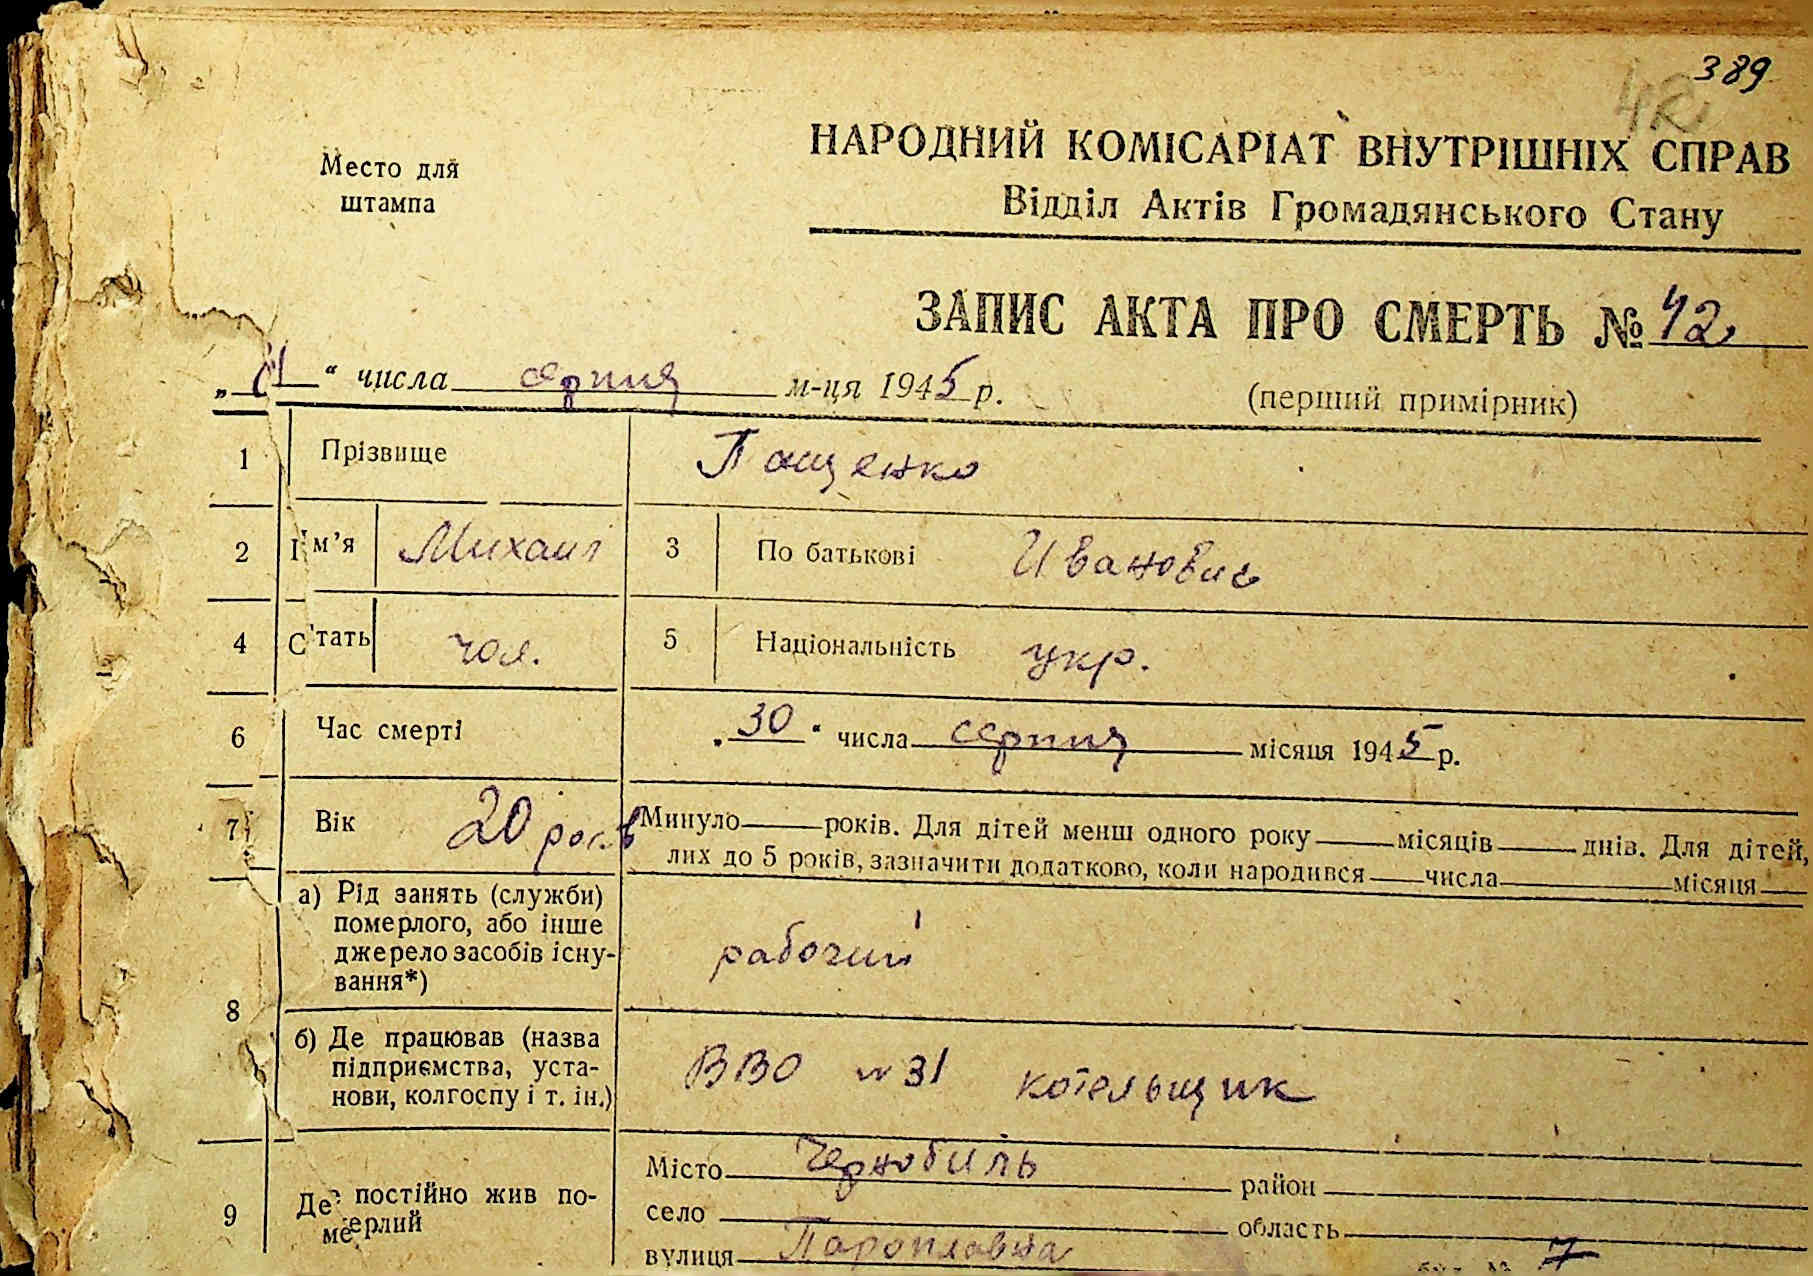 389
42
Место для
штампа
НАРОДНИЙ КОМІСАРІАТ ВНУТРІШНІХ СПРАВ
Відділ Актів Громадянського Стану
ЗАПИС АКТА ПРО СМЕРТЬ № 42
" " числа серпня м-ця 1945 р.
(перший примірник)
1 Прізвище Пащенко
2 Ім'я Михаил 3 По батькові Иванович
4 Стать чол. 5 Національність укр.
6 Час смерті "30" числа серпня місяця 1945 р.
7 Вік 20 років Минуло — років. Для дітей менш одного року — місяців — днів. Для дітей,
лих до 5 років, зазначити додатково, коли народився — числа — місяця —
8 а) Рід занять (служби)
померлого, або інше
джерело засобів існу-
вання*) рабочий
б) Де працював (назва
підприємства, уста-
нови, колгоспу і т. ін.) ВВО № 31 котельщик
9 Де постійно жив по-
мерлий
Місто Чернобиль район
село область
вулиця Пароплавна буд. № 7